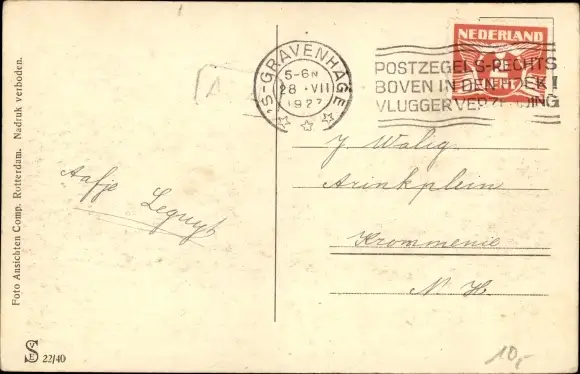 Foto Ansichten Comp. Rotterdam. Nadruk verboden.
22/40
Aafje
'S-GRAVENHAGE
5-6N
28 .VII
1927
POSTZEGELS-RECHTS
BOVEN IN DEN HOEK!
VLUGGER VERZENDING
NEDERLAND
2
CENT
J Walig.
Arinkplein
Krommenie
N. H.
10,-